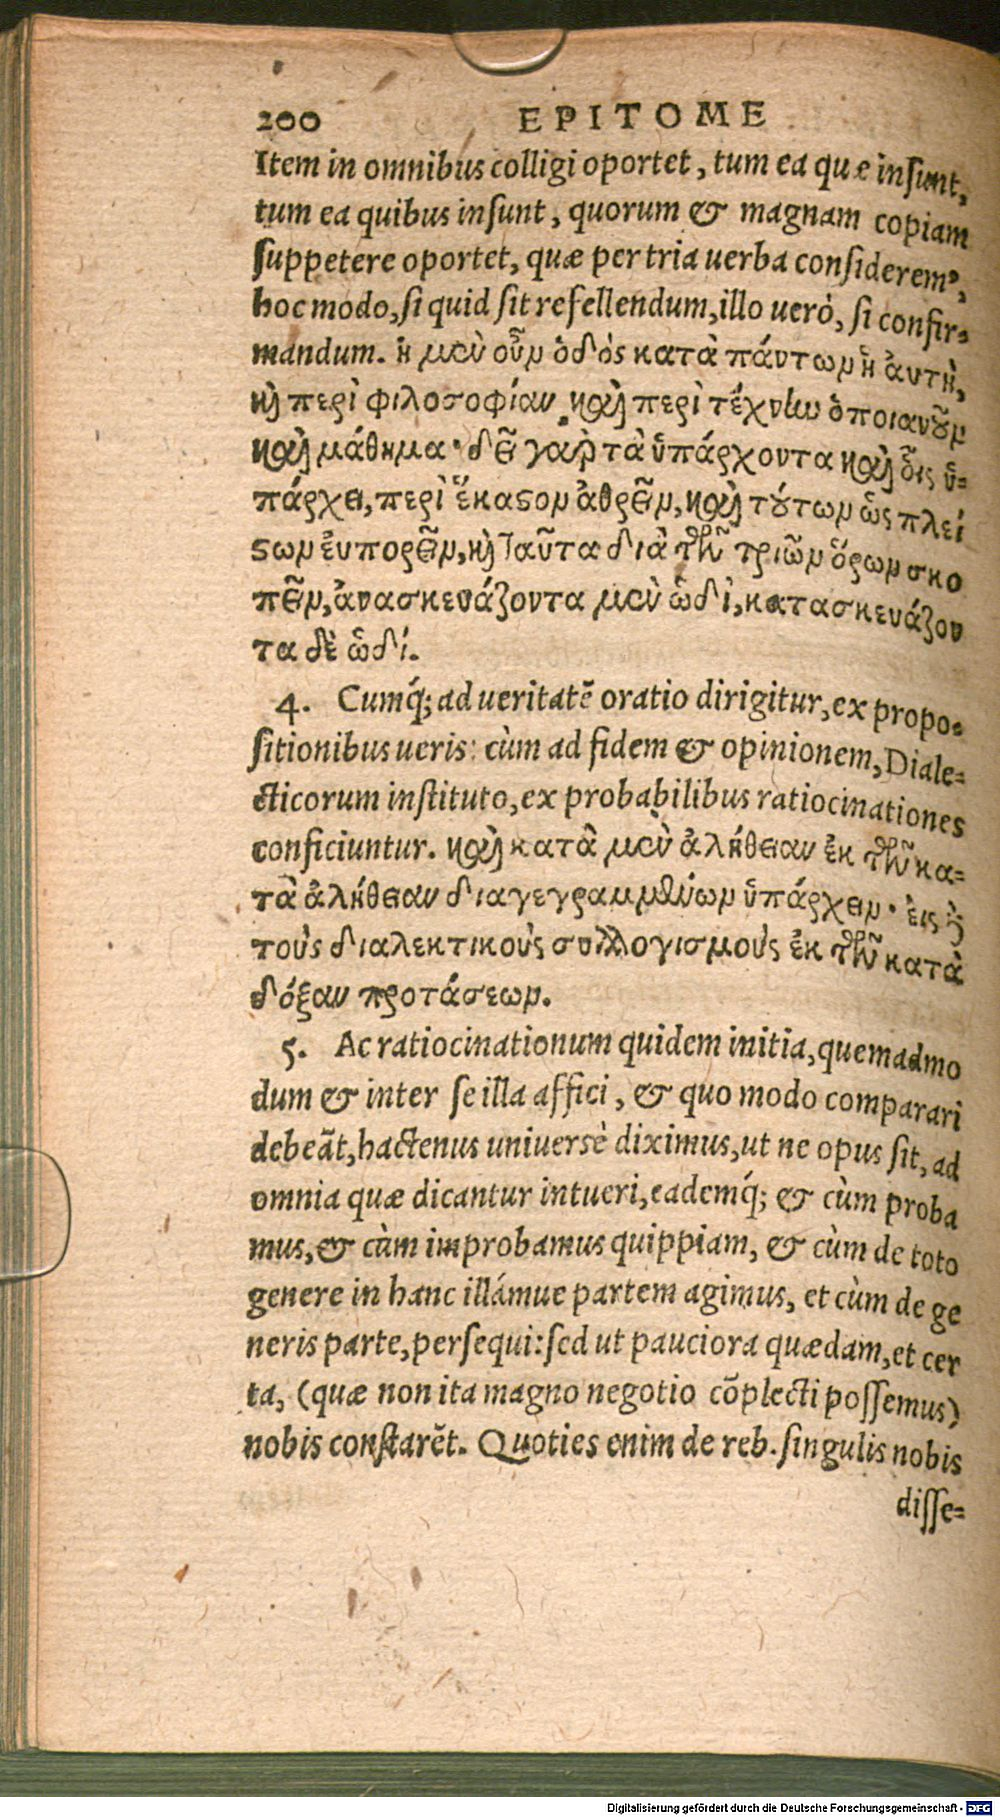 200 EPITOME
Item in omnibus colligi oportet, tum ea quæ insunt,
tum ea quibus insunt, quorum & magnam copiam
suppetere oportet, quæ per tria uerba considerem⁹,
hoc modo, si quid sit refellendum, illo uerò, si confir=
mandum. ἡ μὲν οὖν ὁδὸς κατὰ πάντων ἡ ἀυτὴ,
κὶ περὶ φιλοσοφίαν, καὶ περὶ τέχνίω ὁποιανοῦν
καὶ μάθημα· δεῖ γαὰρ τὰ ὑπάρχοντα καὶ οἷς ὑ=
πάρχει, περὶ ἕκαστον ἀθρεῖν, καὶ τούτων ὡς πλεί
στων ἐυπορεῖν, κὶ ταῦτα διὰ τῶν τριῶν ὅρων σκο
πεῖν, ἀνασκευάζοντα μὲν ὡδὶ, κατασκευάζον
τα δὲ ὡδί.
4. Cumq́; ad ueritatē oratio dirigitur, ex propo=
sitionibus ueris: cùm ad fidem & opinionem, Diale=
cticorum instituto, ex probabilibus ratiocinationes
conficiuntur. καὶ κατὰ μὲν ἀλήθειαν ἐκ τῶν κα=
τὰ ἀλήθειαν διαγεγραμμένων ὑπάρχειν· εἰς δὲ
τοὺς διαλεκτικοὺς συλλογισμοὺς ἐκ τῶν κατὰ
δόξαν προτάσεων.
5. Ac ratiocinationum quidem initia, quemadmo
dum & inter se illa affici, & quo modo comparari
debeāt, hactenus uniuersè diximus, ut ne opus sit, ad
omnia quæ dicantur intueri, eademq́; & cùm proba
mus, & cùm improbamus quippiam, & cùm de toto
genere in hanc illámue partem agimus, et cùm de ge
neris parte, persequi: sed ut pauciora quædam, et cer
ta, (quæ non ita magno negotio cōplecti possemus)
nobis constarēt. Quoties enim de reb. singulis nobis
disse=
Digitalisierung gefördert durch die Deutsche Forschungsgemeinschaft - DFG